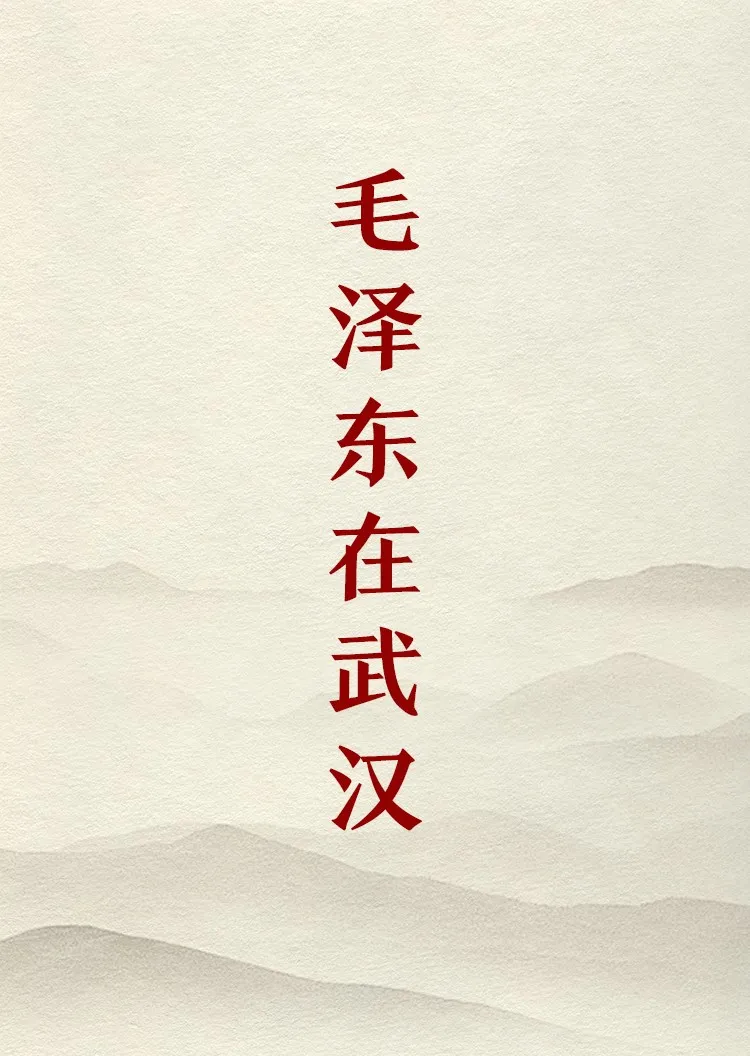 毛泽东在武汉